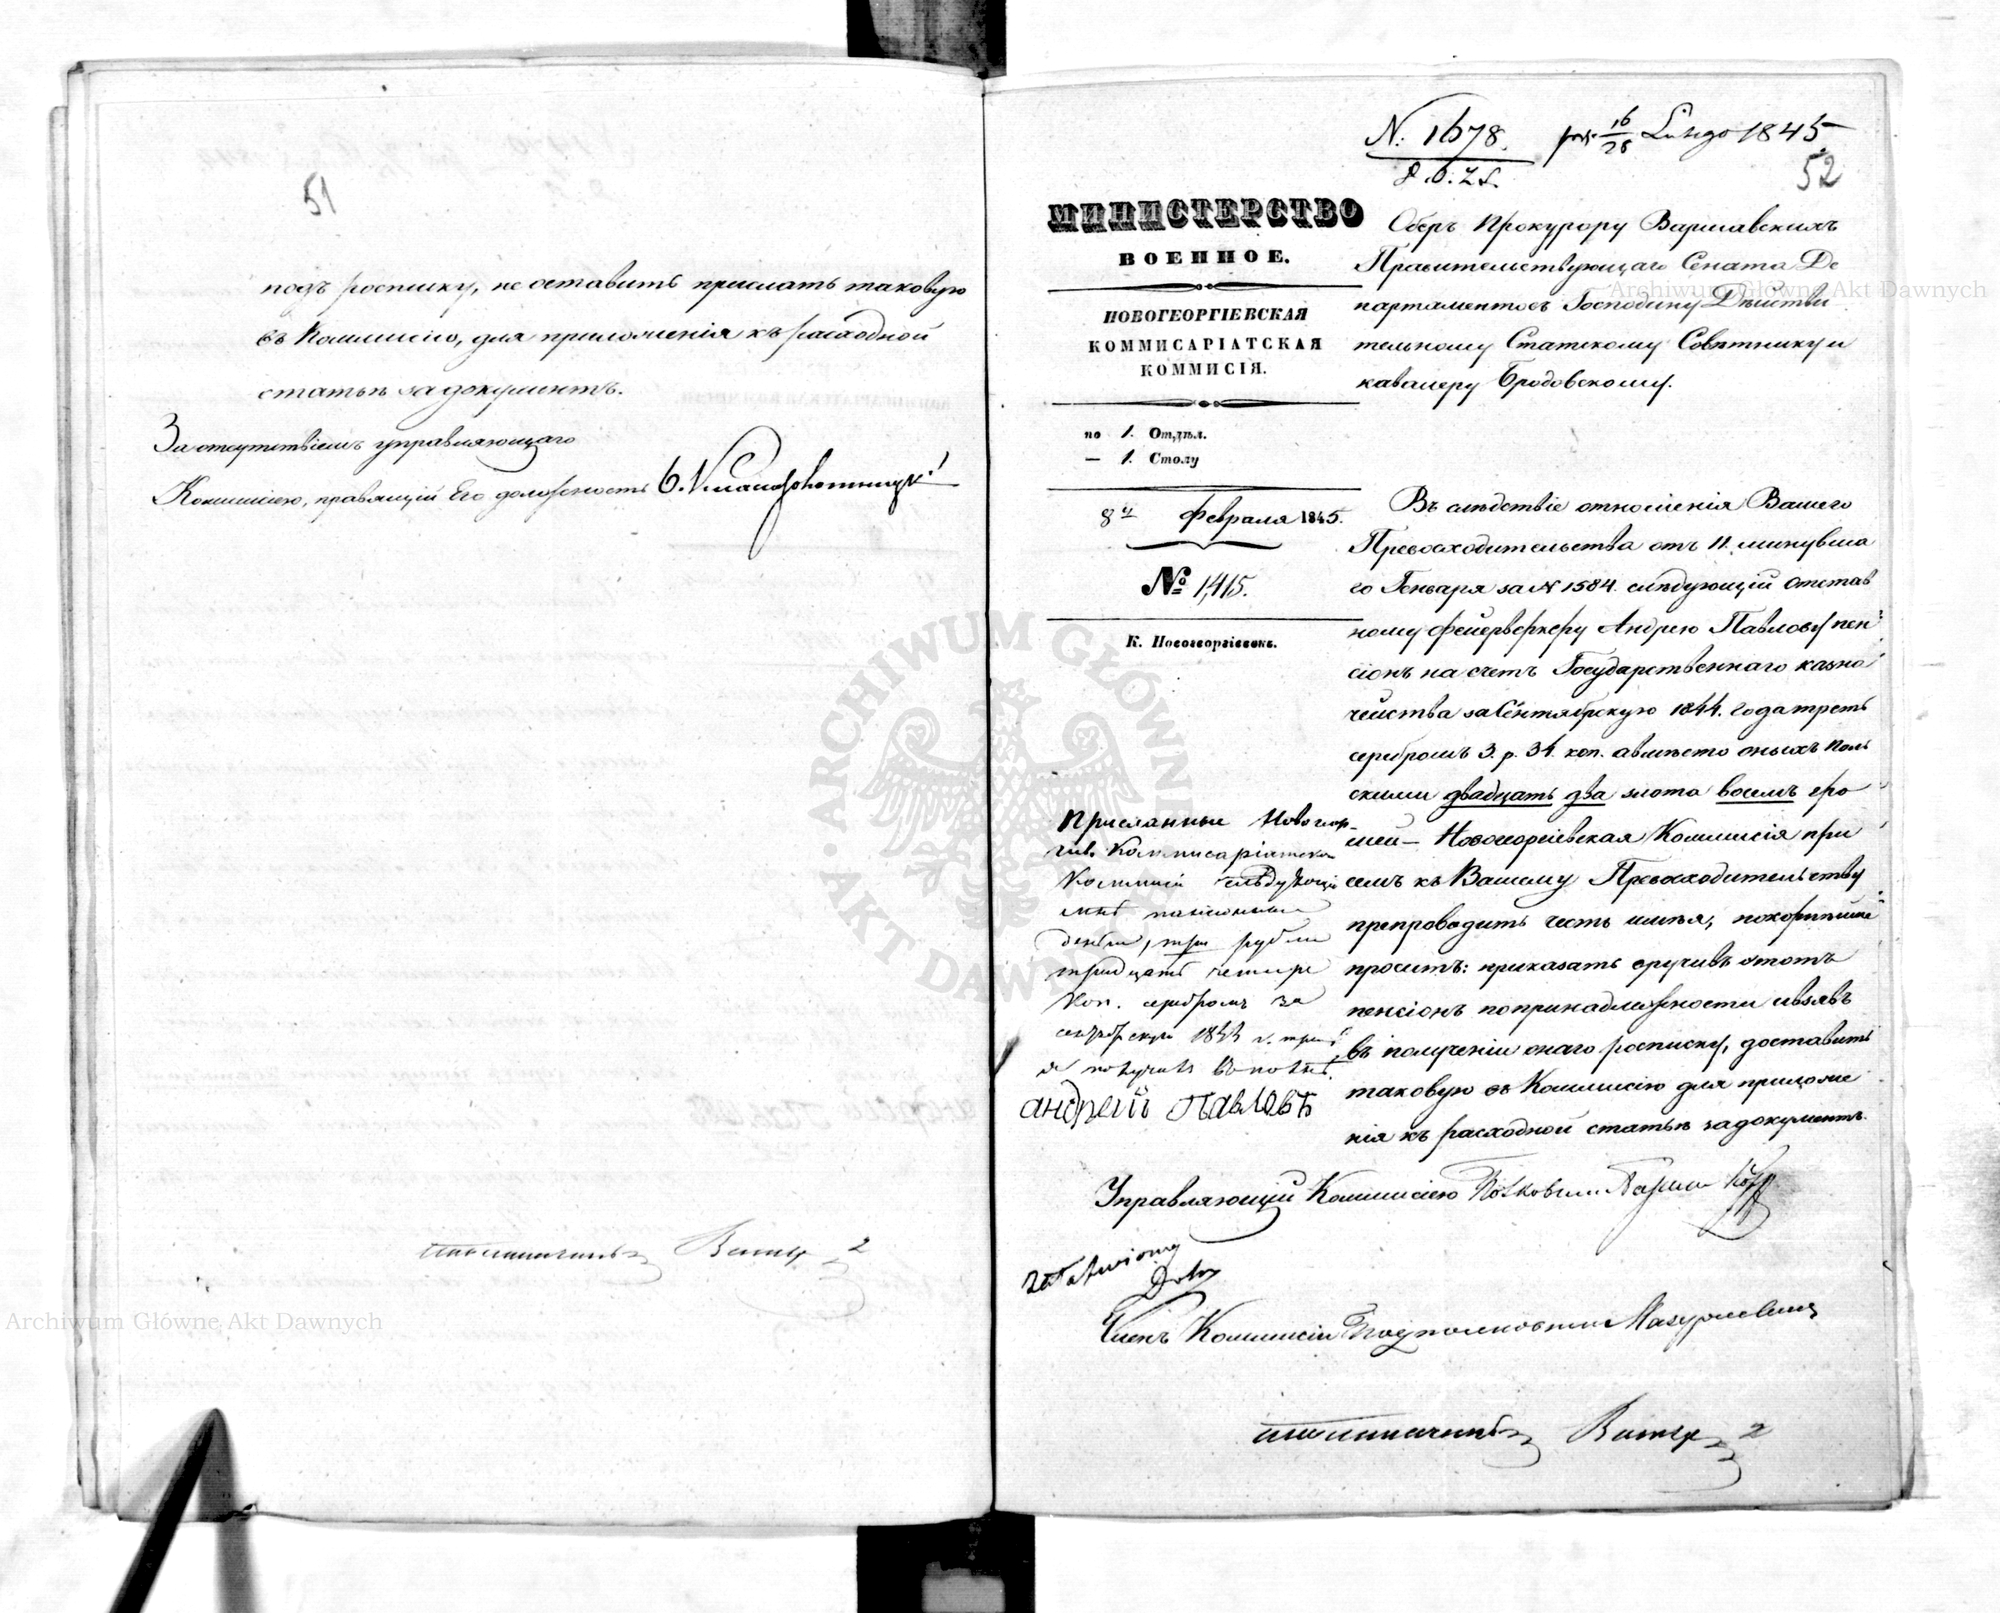 51
подъ росписку, не оставить прислать таковую
въ Коммисію, для приложенія къ расходной
статьѣ за документъ.
За отсутствіемъ управляющаго
Коммисіею, правящій Его должность
N. 1678. 16/28 Lutego 1845
52
МИНИСТЕРСТВО
ВОЕННОЕ.
НОВОГЕОРГІЕВСКАЯ
КОММИСАРІАТСКАЯ
КОММИСІЯ.
по 1. Отдѣл.
— 1. Столу
8го Февраля 1845.
№ 1,415.
К. Новогеоргіевскъ.
Оберъ Прокурору Варшавскихъ
Правительствующаго Сената Де
партаментовъ Господину Дѣйстви
тельному Статскому Совѣтнику и
кавалеру Бродовскому.
Въ слѣдствіе отношенія Вашего
Превосходительства отъ 11. минувша
го Генваря за N 1584. слѣдующій отстав
ному фейерверкеру Андрею Павлову пен
сіонъ на счетъ Государственнаго казна
чейства за Сентябрскую 1844. года треть
серебромъ 3. р. 34. коп. а вмѣсто оныхъ поль
скими двадцать два злота восемь гро
шей — Новогеоргіевская Коммисія при
семъ къ Вашему Превосходительству
препроводить честь имѣя, покорнѣйше
проситъ: приказать вручивъ этотъ
пенсіонъ по принадлежности и взявъ
въ полученіи онаго росписку, доставить
таковую въ Коммисію для приложе
нія къ расходной статьѣ за документъ.
Присланные Новогеор-
гіев. Коммисаріатской
Коммисіи слѣдующіе
мнѣ пансіонные
деньги, три рубли
тридцать четыре
коп. серебромъ за
сентябрскую 1844 г. треть
я получилъ
андрей Павловъ
Управляющій Коммисіею Полковникъ
Членъ Коммисіи Подполковникъ
Archiwum Główne Akt Dawnych
Archiwum Główne Akt Dawnych
ARCHIWUM GŁÓWNE AKT DAWNYCH